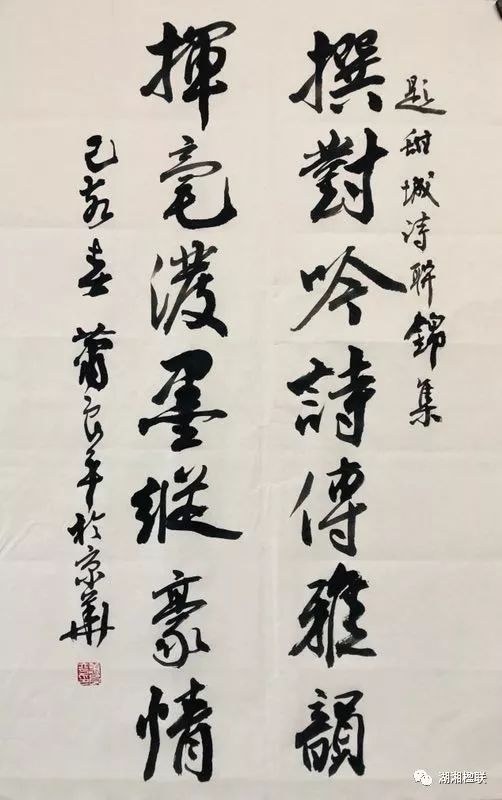 題甜城诗聯錦集
撰對吟詩傳雅韻
揮毫潑墨縱豪情
己亥春 蕭良平於京華
湖湘楹联